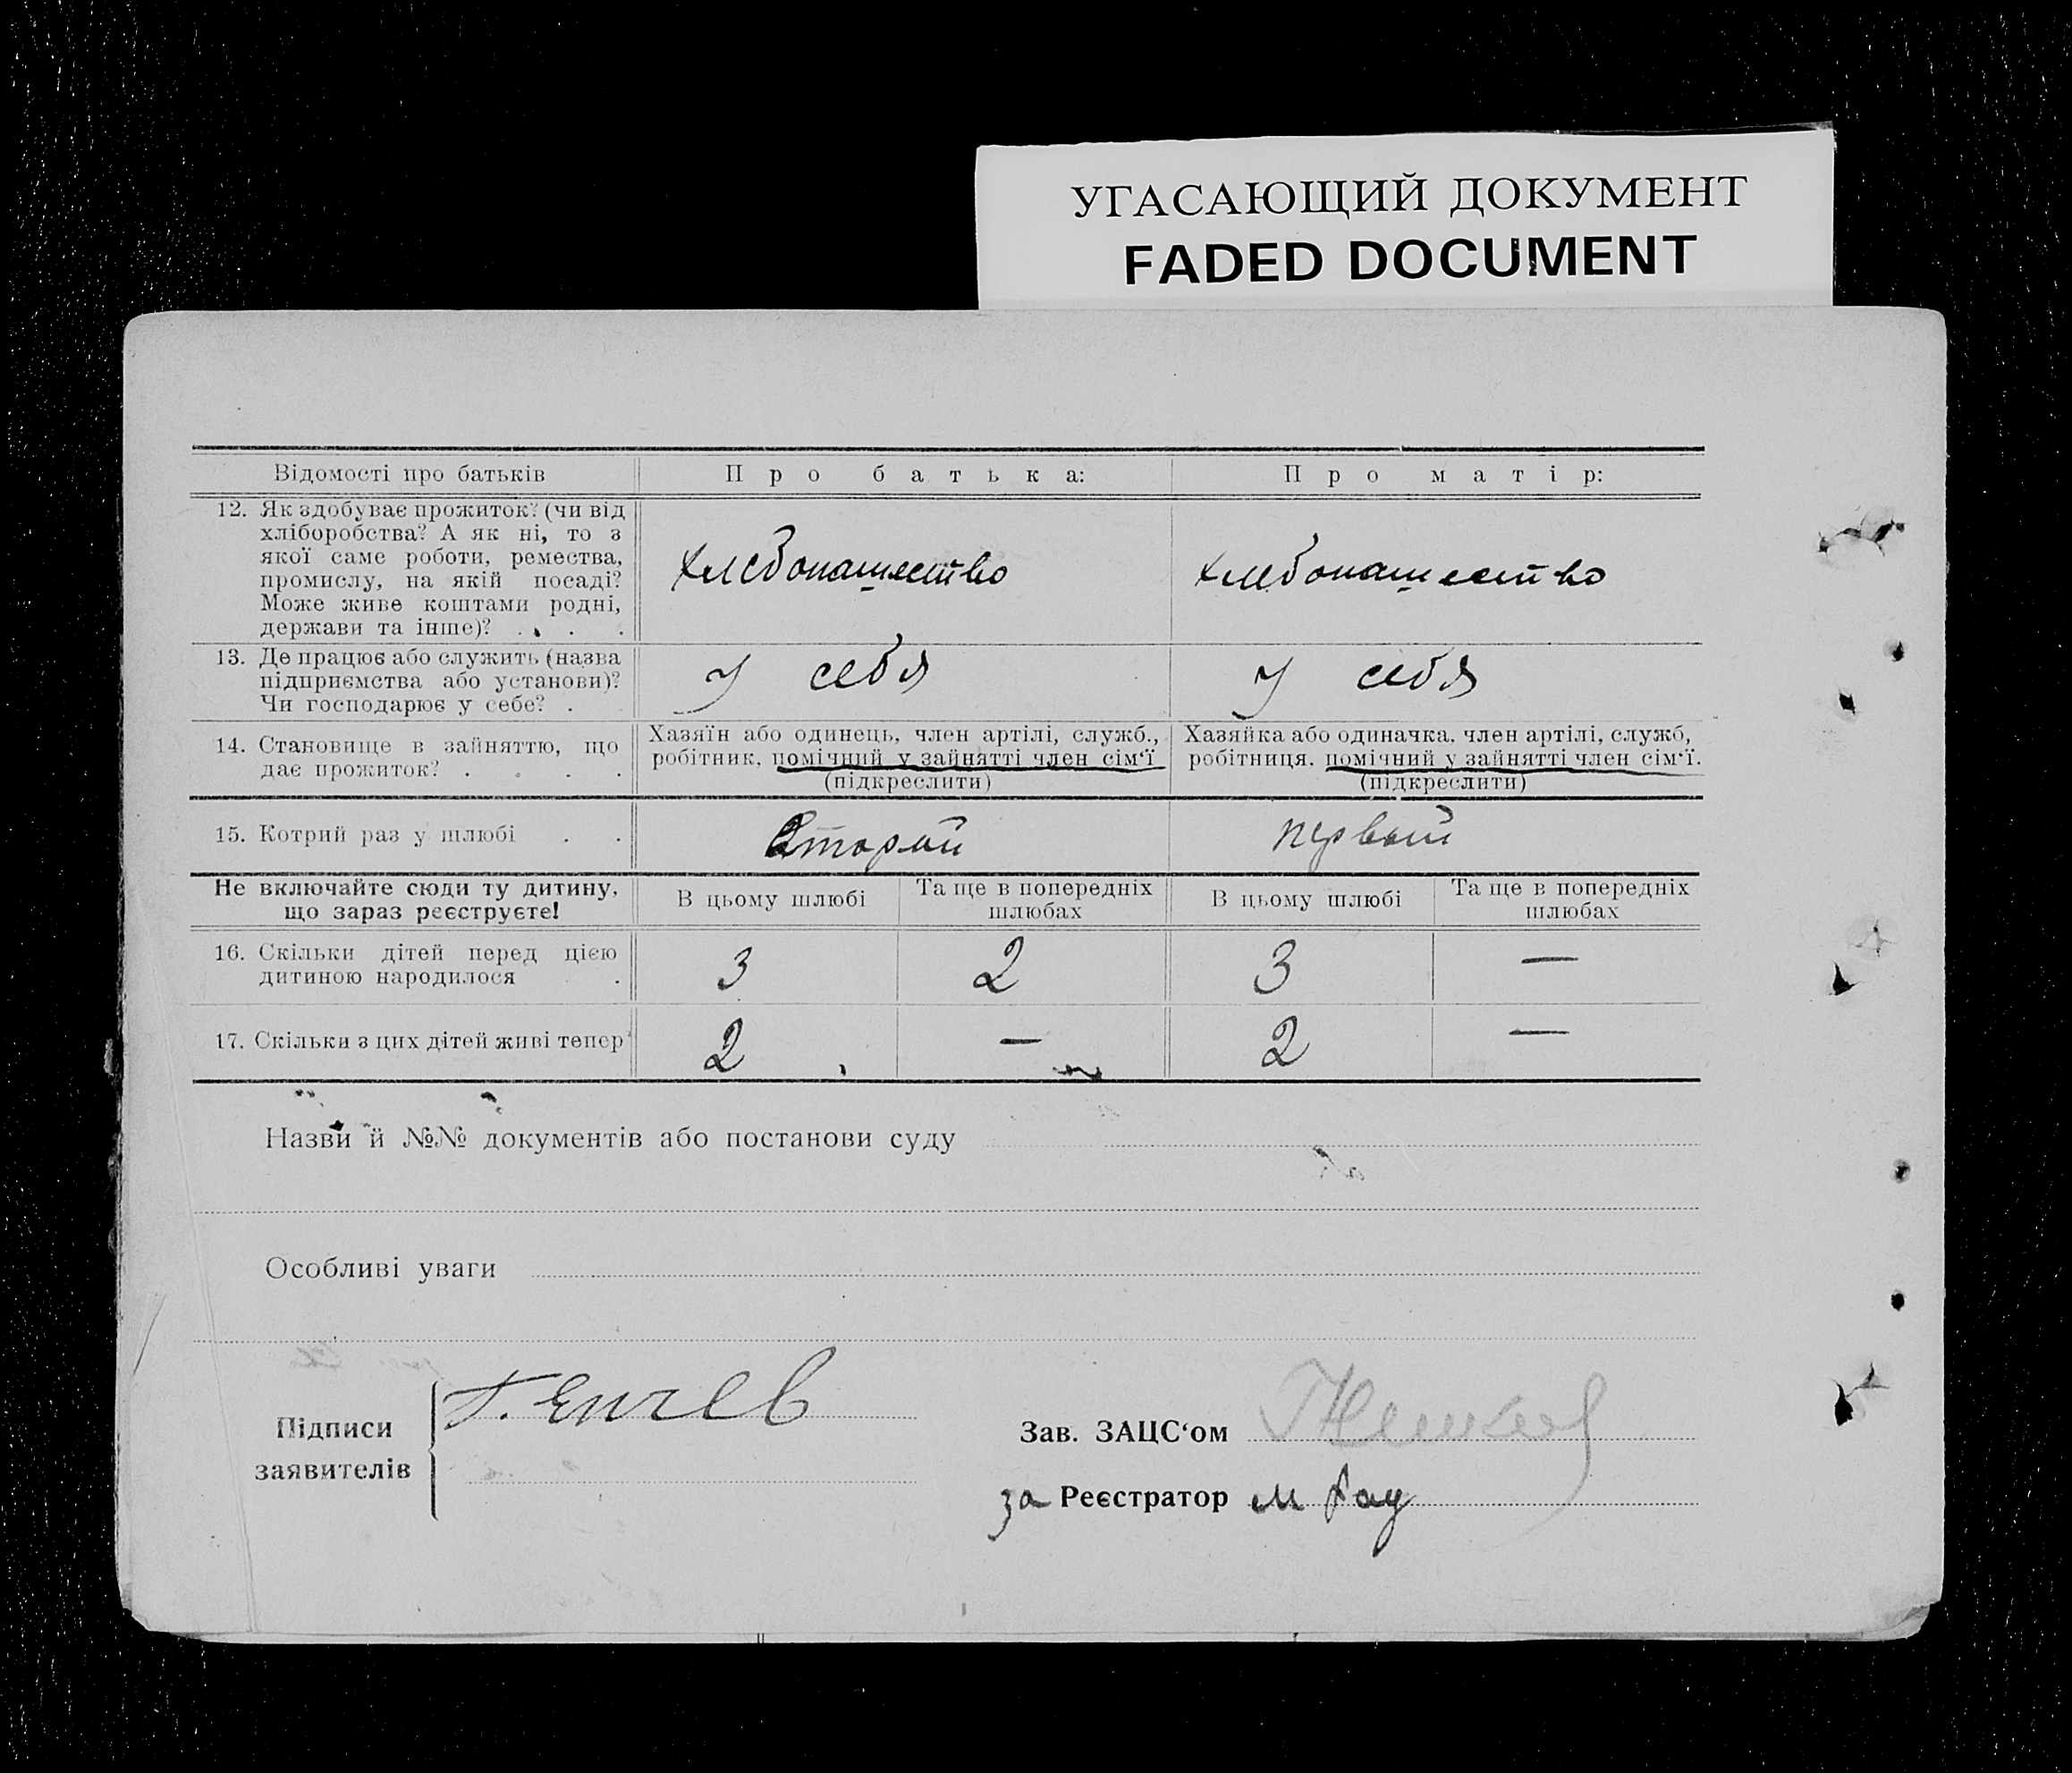 УГАСАЮЩИЙ ДОКУМЕНТ
FADED DOCUMENT
Відомості про батьків
Про батька:
Про матір:
12. Як здобуває прожиток? (чи від
хліборобства? А як ні, то з
якої саме роботи, ремества,
промислу, на якій посаді?
Може живе коштами родні,
держави та інше)? . . . .
хлебопашество
хлебопашество
13. Де працює або служить (назва
підприємства або установи)?
Чи господарює у себе? .
у себя
у себя
14. Становище в зайняттю, що
дає прожиток? . . . .
Хазяїн або одинець, член артілі, служб.,
робітник, помічний у зайнятті член сім‘ї
(підкреслити)
Хазяйка або одиначка, член артілі, служб,
робітниця, помічний у зайнятті член сім‘ї.
(підкреслити)
15. Котрий раз у шлюбі . .
Второй
первый
Не включайте сюди ту дитину,
що зараз реєструєте!
В цьому шлюбі
Та ще в попередніх
шлюбах
В цьому шлюбі
Та ще в попередніх
шлюбах
16. Скільки дітей перед цією
дитиною народилося .
3 2 3 —
17. Скільки з цих дітей живі тепер
2 — 2 —
Назви й №№ документів або постанови суду
Особливі уваги
Підписи
заявителів
Г. Енчев
Зав. ЗАЦС‘ом
за Реєстратор